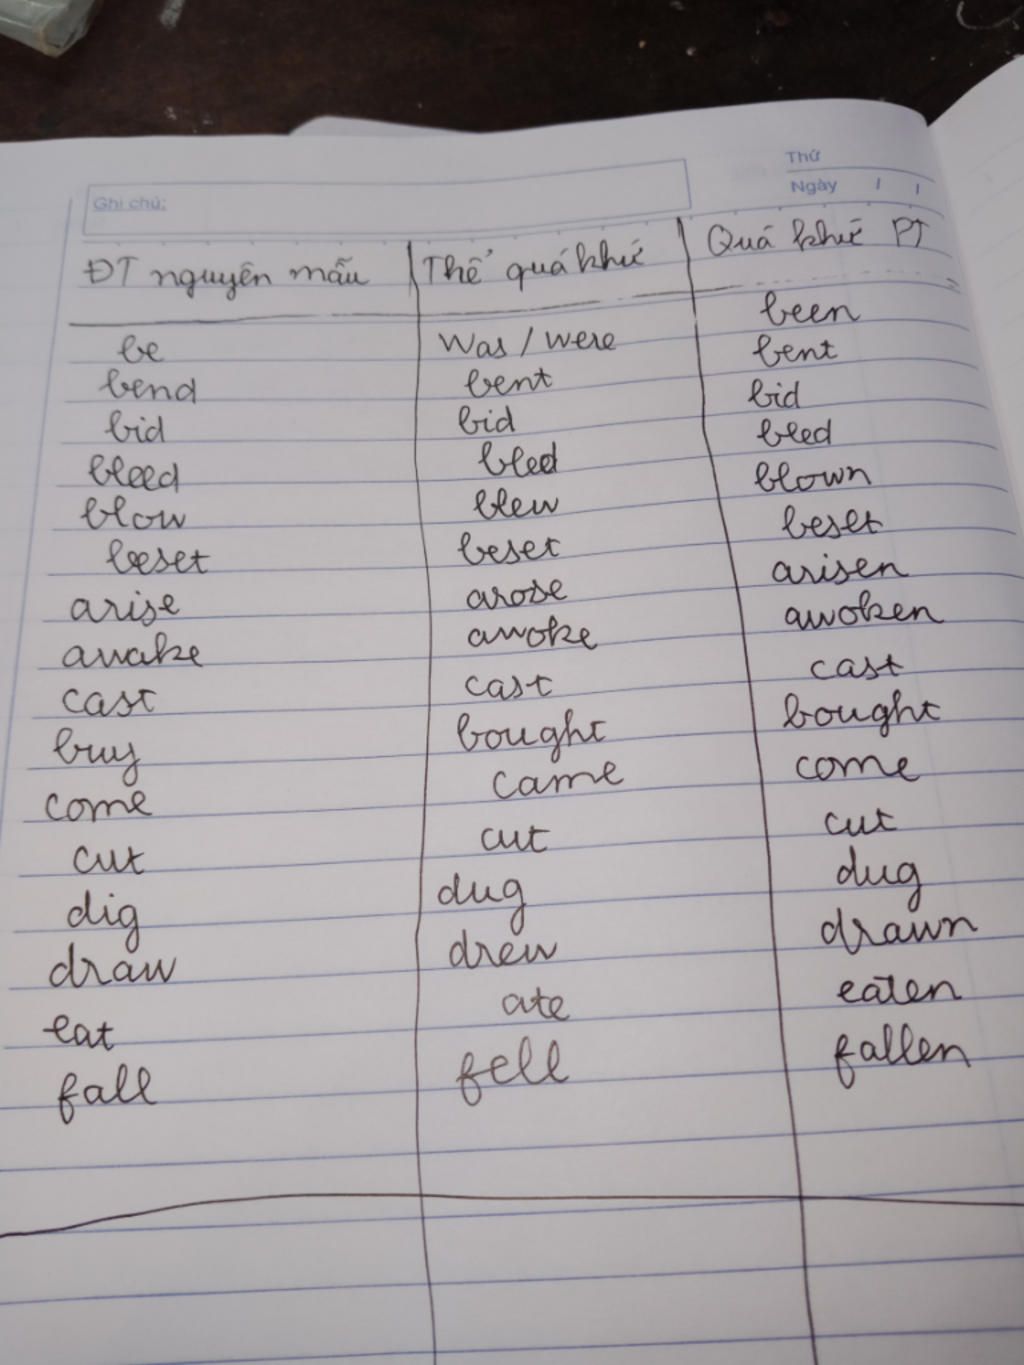 Thứ
Ghi chú:
Ngày / /
ĐT nguyên mẫu Thể quá khứ Quá khứ PT
be was / were been
bend bent bent
bid bid bid
bleed bled bled
blow blew blown
beset beset beset
arise arose arisen
awake awoke awoken
cast cast cast
buy bought bought
come came come
cut cut cut
dig dug dug
draw drew drawn
eat ate eaten
fall fell fallen